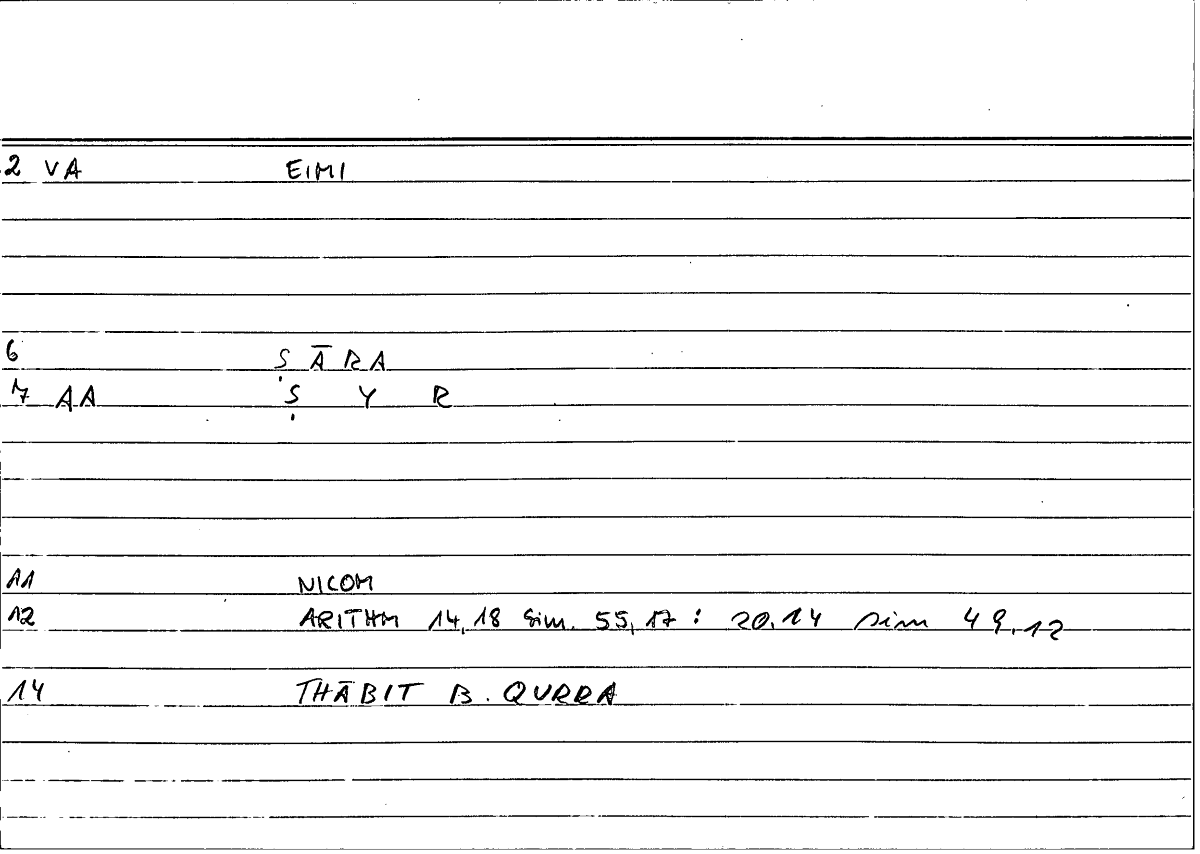 2 VA EIMI
6 ṢĀRA
7 AA Ṣ Y R
11 NICOM
12 ARITHM 14,18 sim. 55,17 : 20,14 sim 49,12
14 THĀBIT B. QURRA